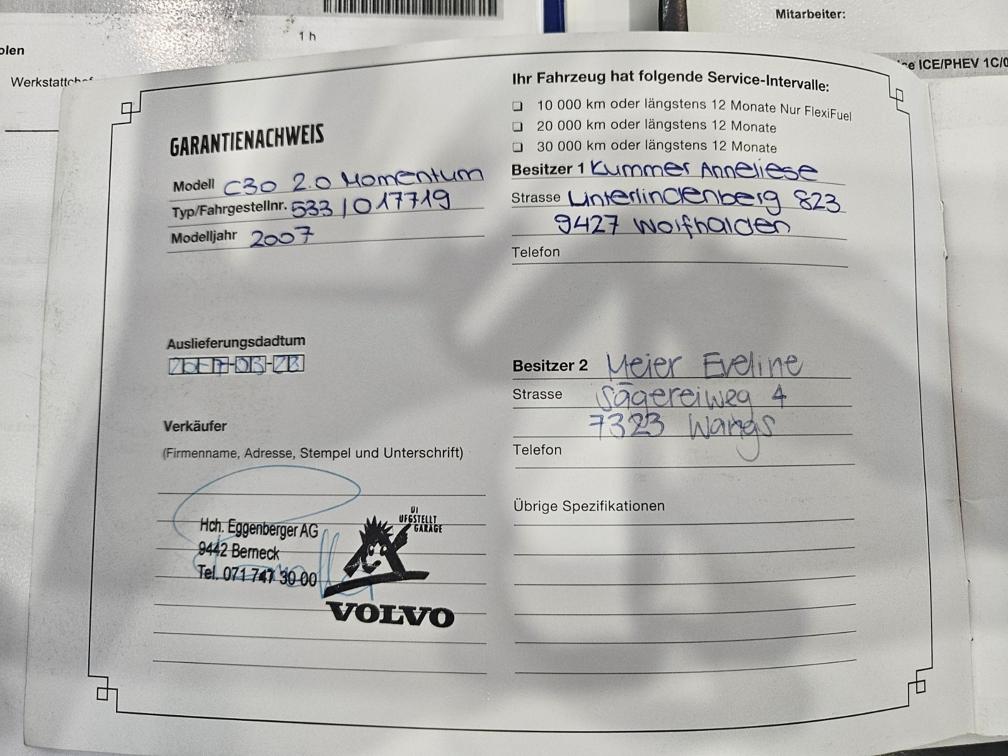 Mitarbeiter:
1 h
olen
Werkstattchef
ce ICE/PHEV 1C/0
GARANTIENACHWEIS
Modell C30 2.0 Momentum
Typ/Fahrgestellnr. 533 / 017719
Modelljahr 2007
Auslieferungsdadtum
Verkäufer
(Firmenname, Adresse, Stempel und Unterschrift)
Hch. Eggenberger AG
9442 Berneck
Tel. 071 747 30 00
DI
UFGSTELLT
GARAGE
VOLVO
Ihr Fahrzeug hat folgende Service-Intervalle:
10 000 km oder längstens 12 Monate Nur FlexiFuel
20 000 km oder längstens 12 Monate
30 000 km oder längstens 12 Monate
Besitzer 1 Kummer Anneliese
Strasse Unterlindenberg 823
9427 Wolfhalden
Telefon
Besitzer 2 Meier Eveline
Strasse Sägereiweg 4
7323 Wangs
Telefon
Übrige Spezifikationen